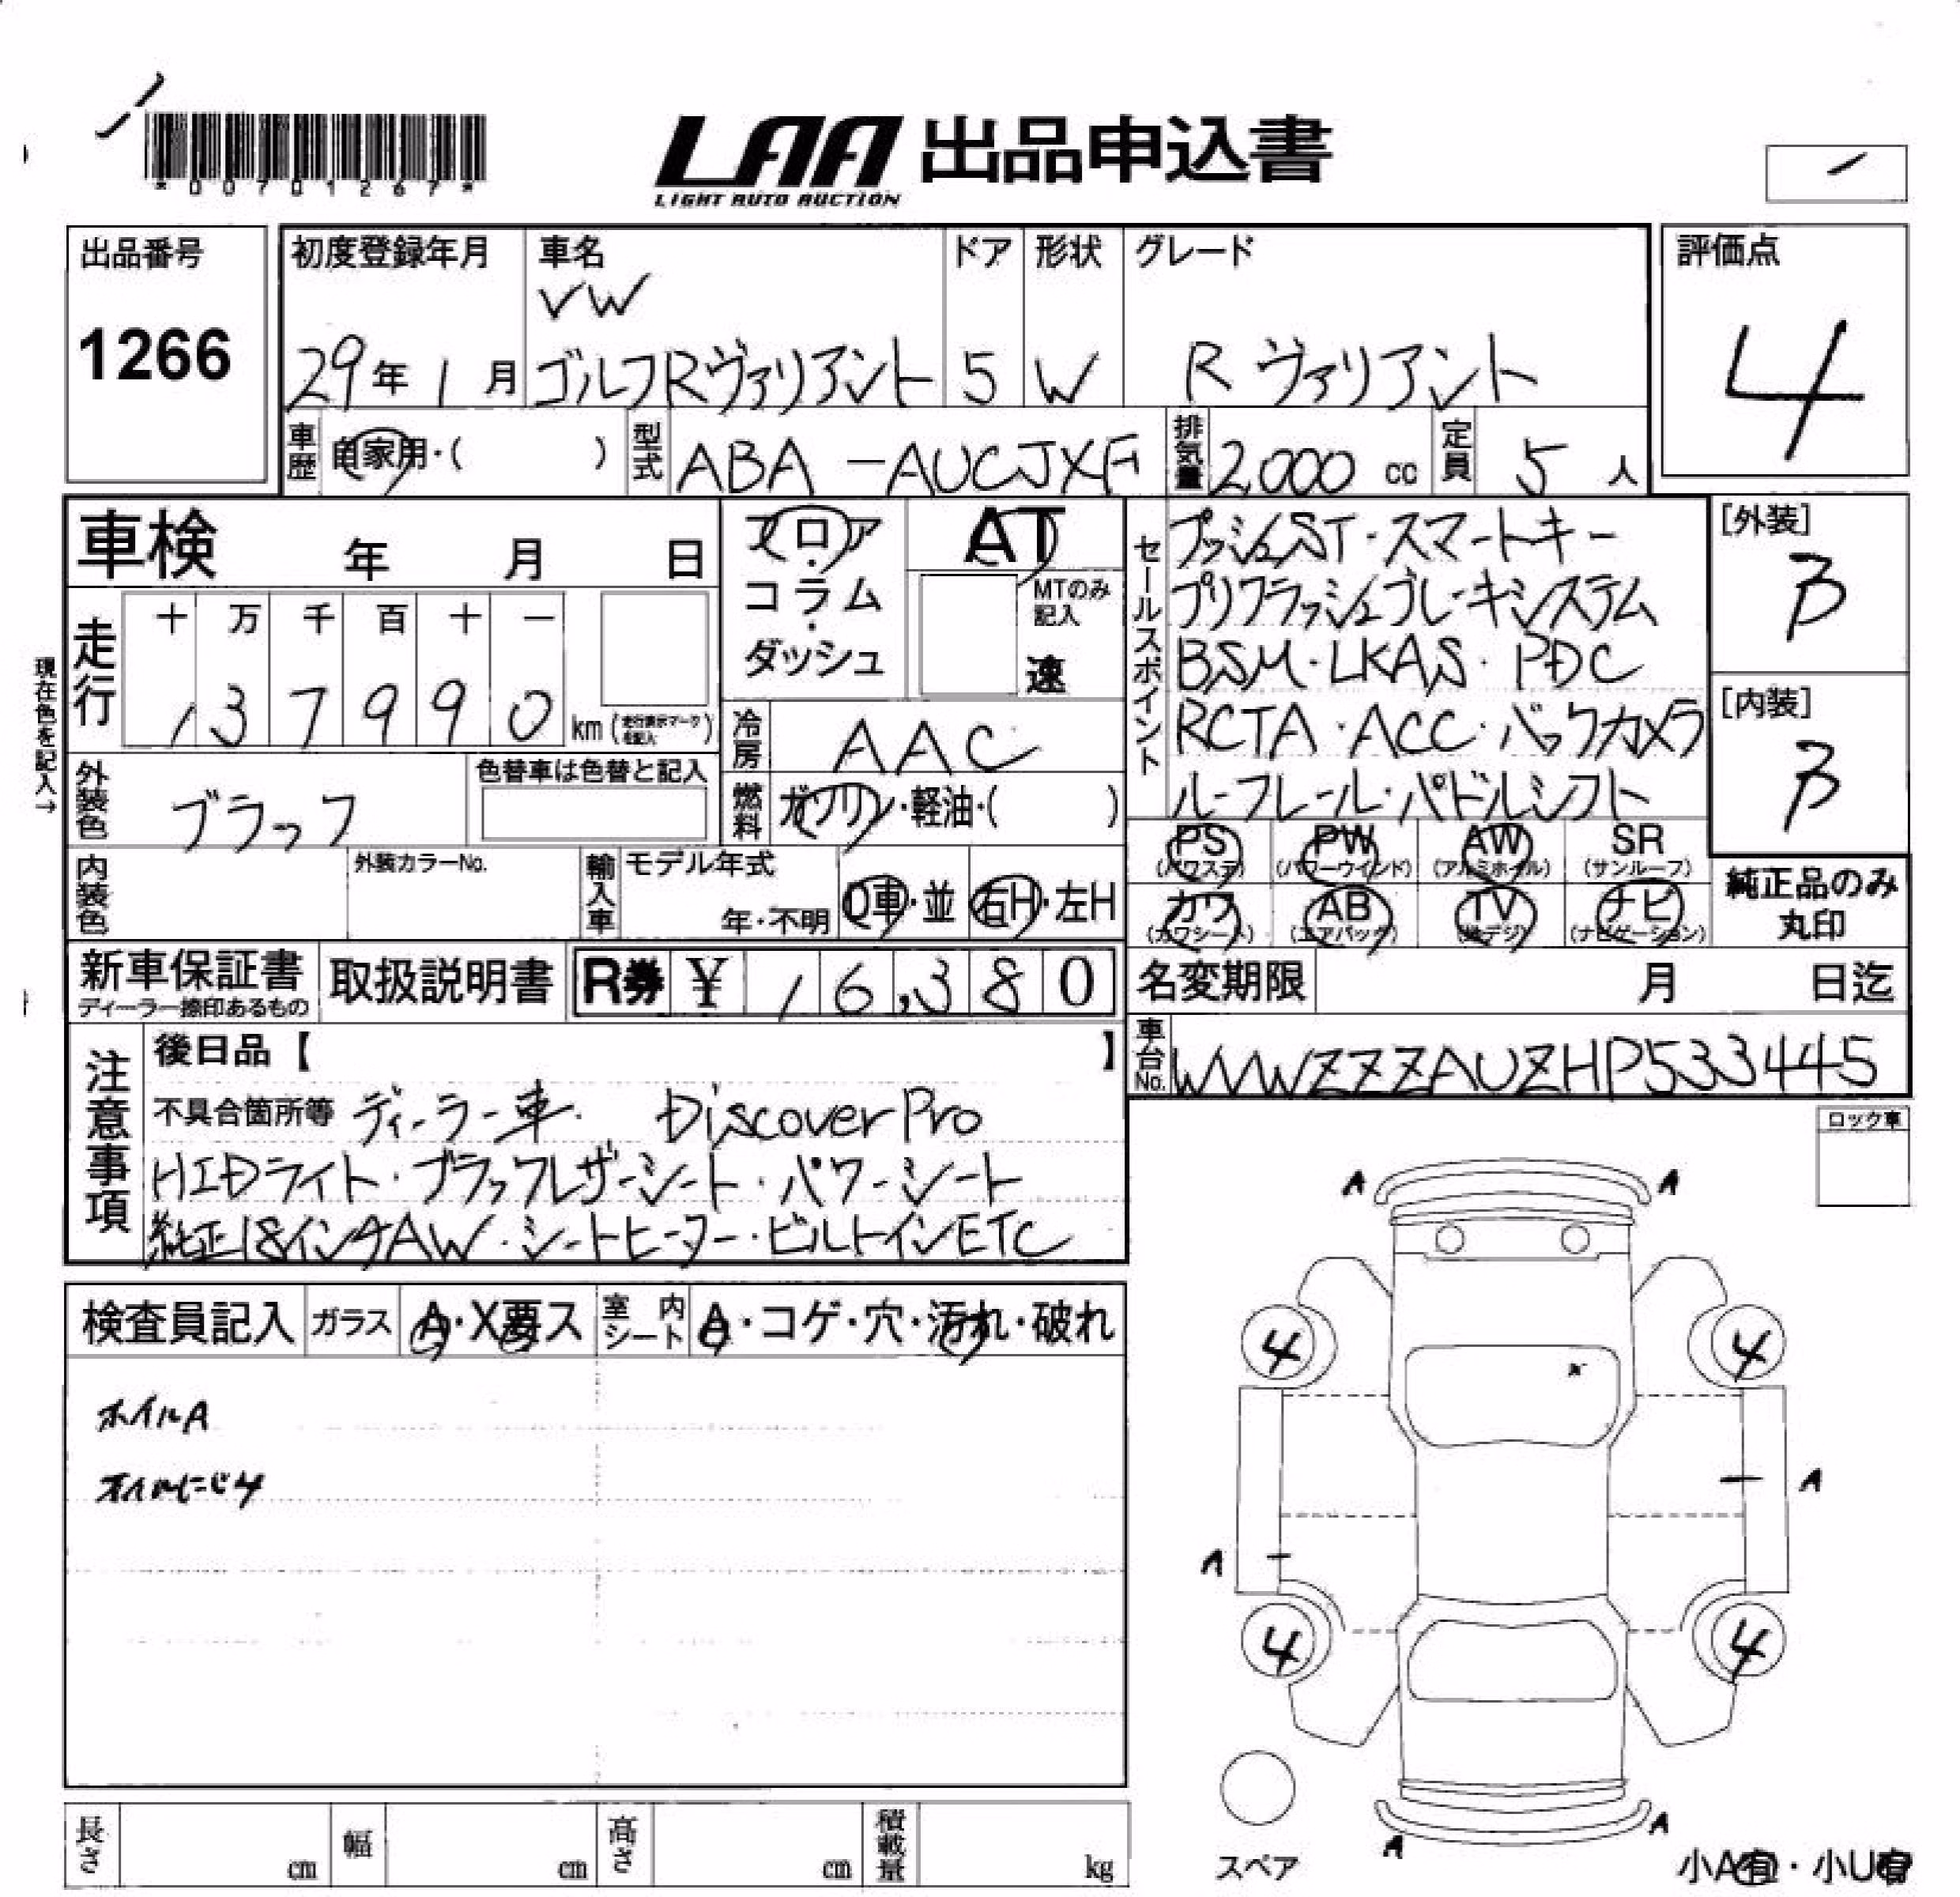 *00701267*
LAA 出品申込書
LIGHT AUTO AUCTION
出品番号
1266
初度登録年月
29年1月
車名
VW
ゴルフRヴァリアント
ドア
5
形状
W
グレード
R ヴァリアント
評価点
4
車歴 自家用・( )
型式 ABA-AUCJXF
排気量 2,000 cc
定員 5 人
車検 年 月 日
フロア・コラム・ダッシュ
AT
MTのみ記入
速
セールスポイント
プッシュST・スマートキー
プリクラッシュブレーキシステム
BSM・LKAS・PDC
RCTA・ACC・バックカメラ
ルーフレール・パドルシフト
[外装]
B
[内装]
B
現在色を記入→
走行
十 万 千 百 十 一
, 3 7 9 9 0 km (走行表示マークを記入)
冷房 AAC
外装色 ブラック
色替車は色替と記入
燃料 ガソリン・軽油・( )
内装色
外装カラーNo.
輸入車 モデル年式
年・不明
D車・並
右H・左H
PS (パワステ)
PW (パワーウインド)
AW (アルミホイル)
SR (サンルーフ)
カワ (カワシート)
AB (エアバック)
TV (地デジ)
ナビ (ナビゲーション)
純正品のみ
丸印
新車保証書
ディーラー捺印あるもの
取扱説明書
R券 ¥ , 16,380
名変期限 月 日迄
車台No. WVWZZZAUZHP533445
注意事項
後日品【 】
不具合箇所等 ディーラー車. Discover Pro
HIDライト・ブラックレザーシート・パワーシート
純正18インチAW・シートヒーター・ビルトインETC
ロック車
検査員記入
ガラス A・X要ス
室内シート A・コゲ・穴・汚れ・破れ
ホイルA
オイルにじみ
A A
4 4
A
A
4 4
A A
スペア
小A有・小U有
長さ cm
幅 cm
高さ cm
積載量 kg